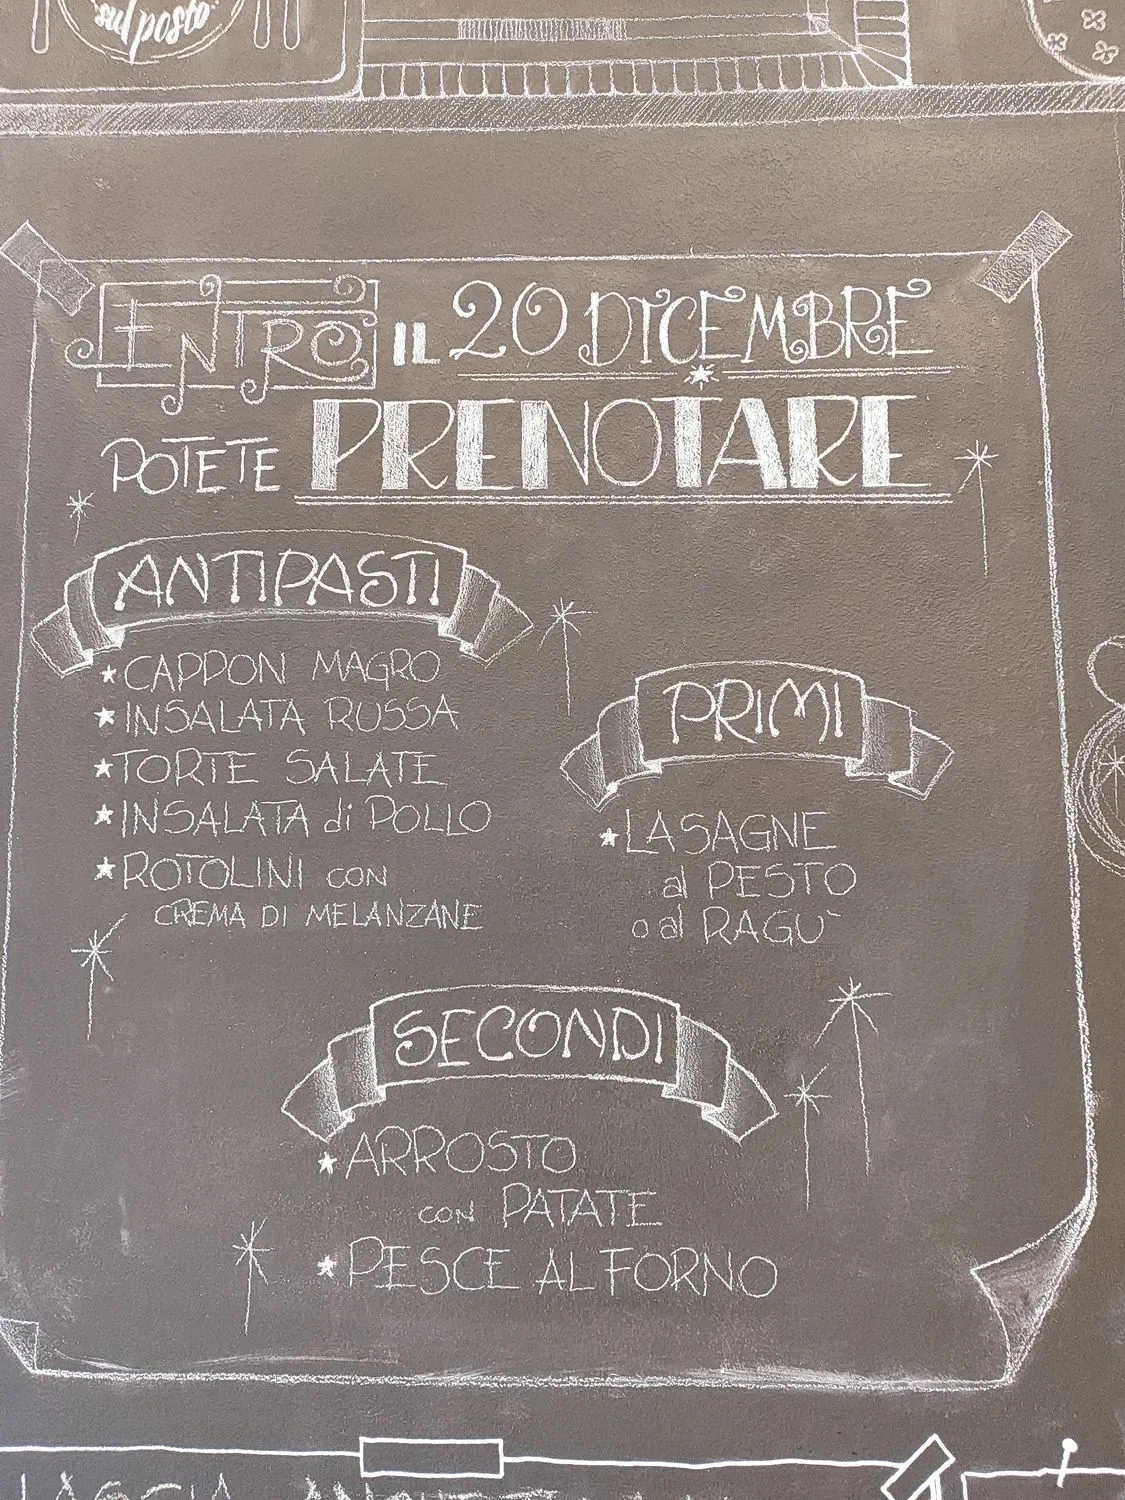 sul posto
ENTRO IL 20 DICEMBRE
POTETE PRENOTARE
ANTIPASTI
CAPPON MAGRO
INSALATA RUSSA
TORTE SALATE
INSALATA di POLLO
ROTOLINI con
CREMA DI MELANZANE
PRIMI
LASAGNE
al PESTO
o al RAGU`
SECONDI
ARROSTO
con PATATE
PESCE AL FORNO